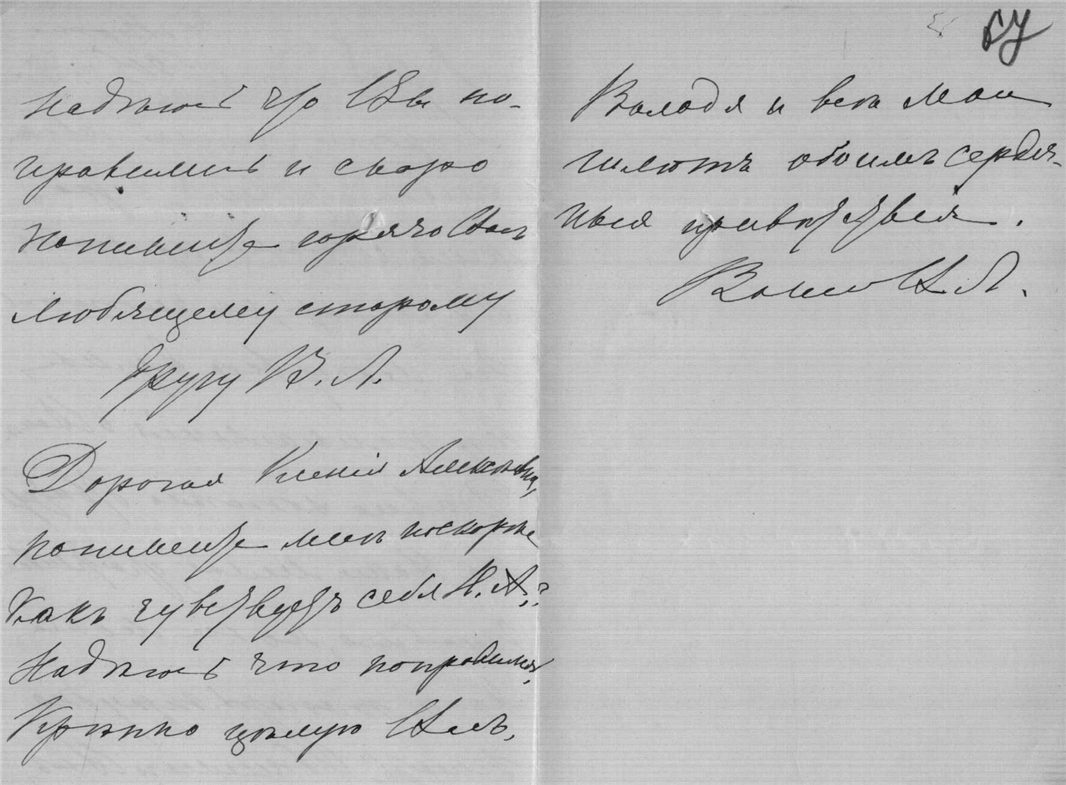 Надѣюсь что Вы по-
правились и скоро
напишете горячо Васъ
любящему старому
другу В. Л.
Дорогая Ксенія Алексѣевна,
напишите мнѣ поскорѣе
Какъ чувствуетъ себя Н. А.?
Надѣюсь что поправился,
Крѣпко цѣлую Васъ.
Володя и всѣ мои
шлютъ обоимъ сердеч-
ныя привѣтствія.
В. Л.